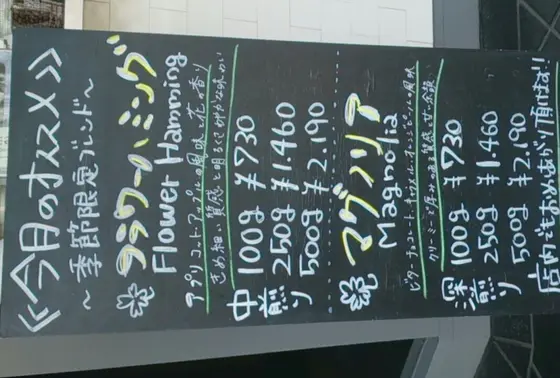 《今月のオススメ》
～季節限定ブレンド～
フラワーハミング
Flower Hamming
アプリコット、アップルの風味、花の香り
きめ細かい質感と明るくさわやかな味わい
中煎り
100g ¥730
250g ¥1.460
500g ¥2.190
マグノリア
Magnolia
ビターチョコレート、キャラメル、オレンジピールの風味
クリーミーで厚みのある質感と甘い余韻
深煎り
100g ¥730
250g ¥1.460
500g ¥2.190
店内でもお召し上がり頂けます!!